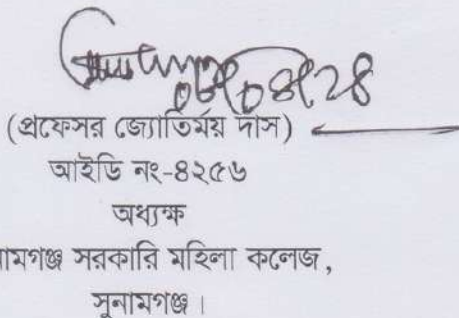 (প্রফেসর জ্যোতির্ময় দাস)
আইডি নং-৪২৫৬
অধ্যক্ষ
নামগঞ্জ সরকারি মহিলা কলেজ,
সুনামগঞ্জ।